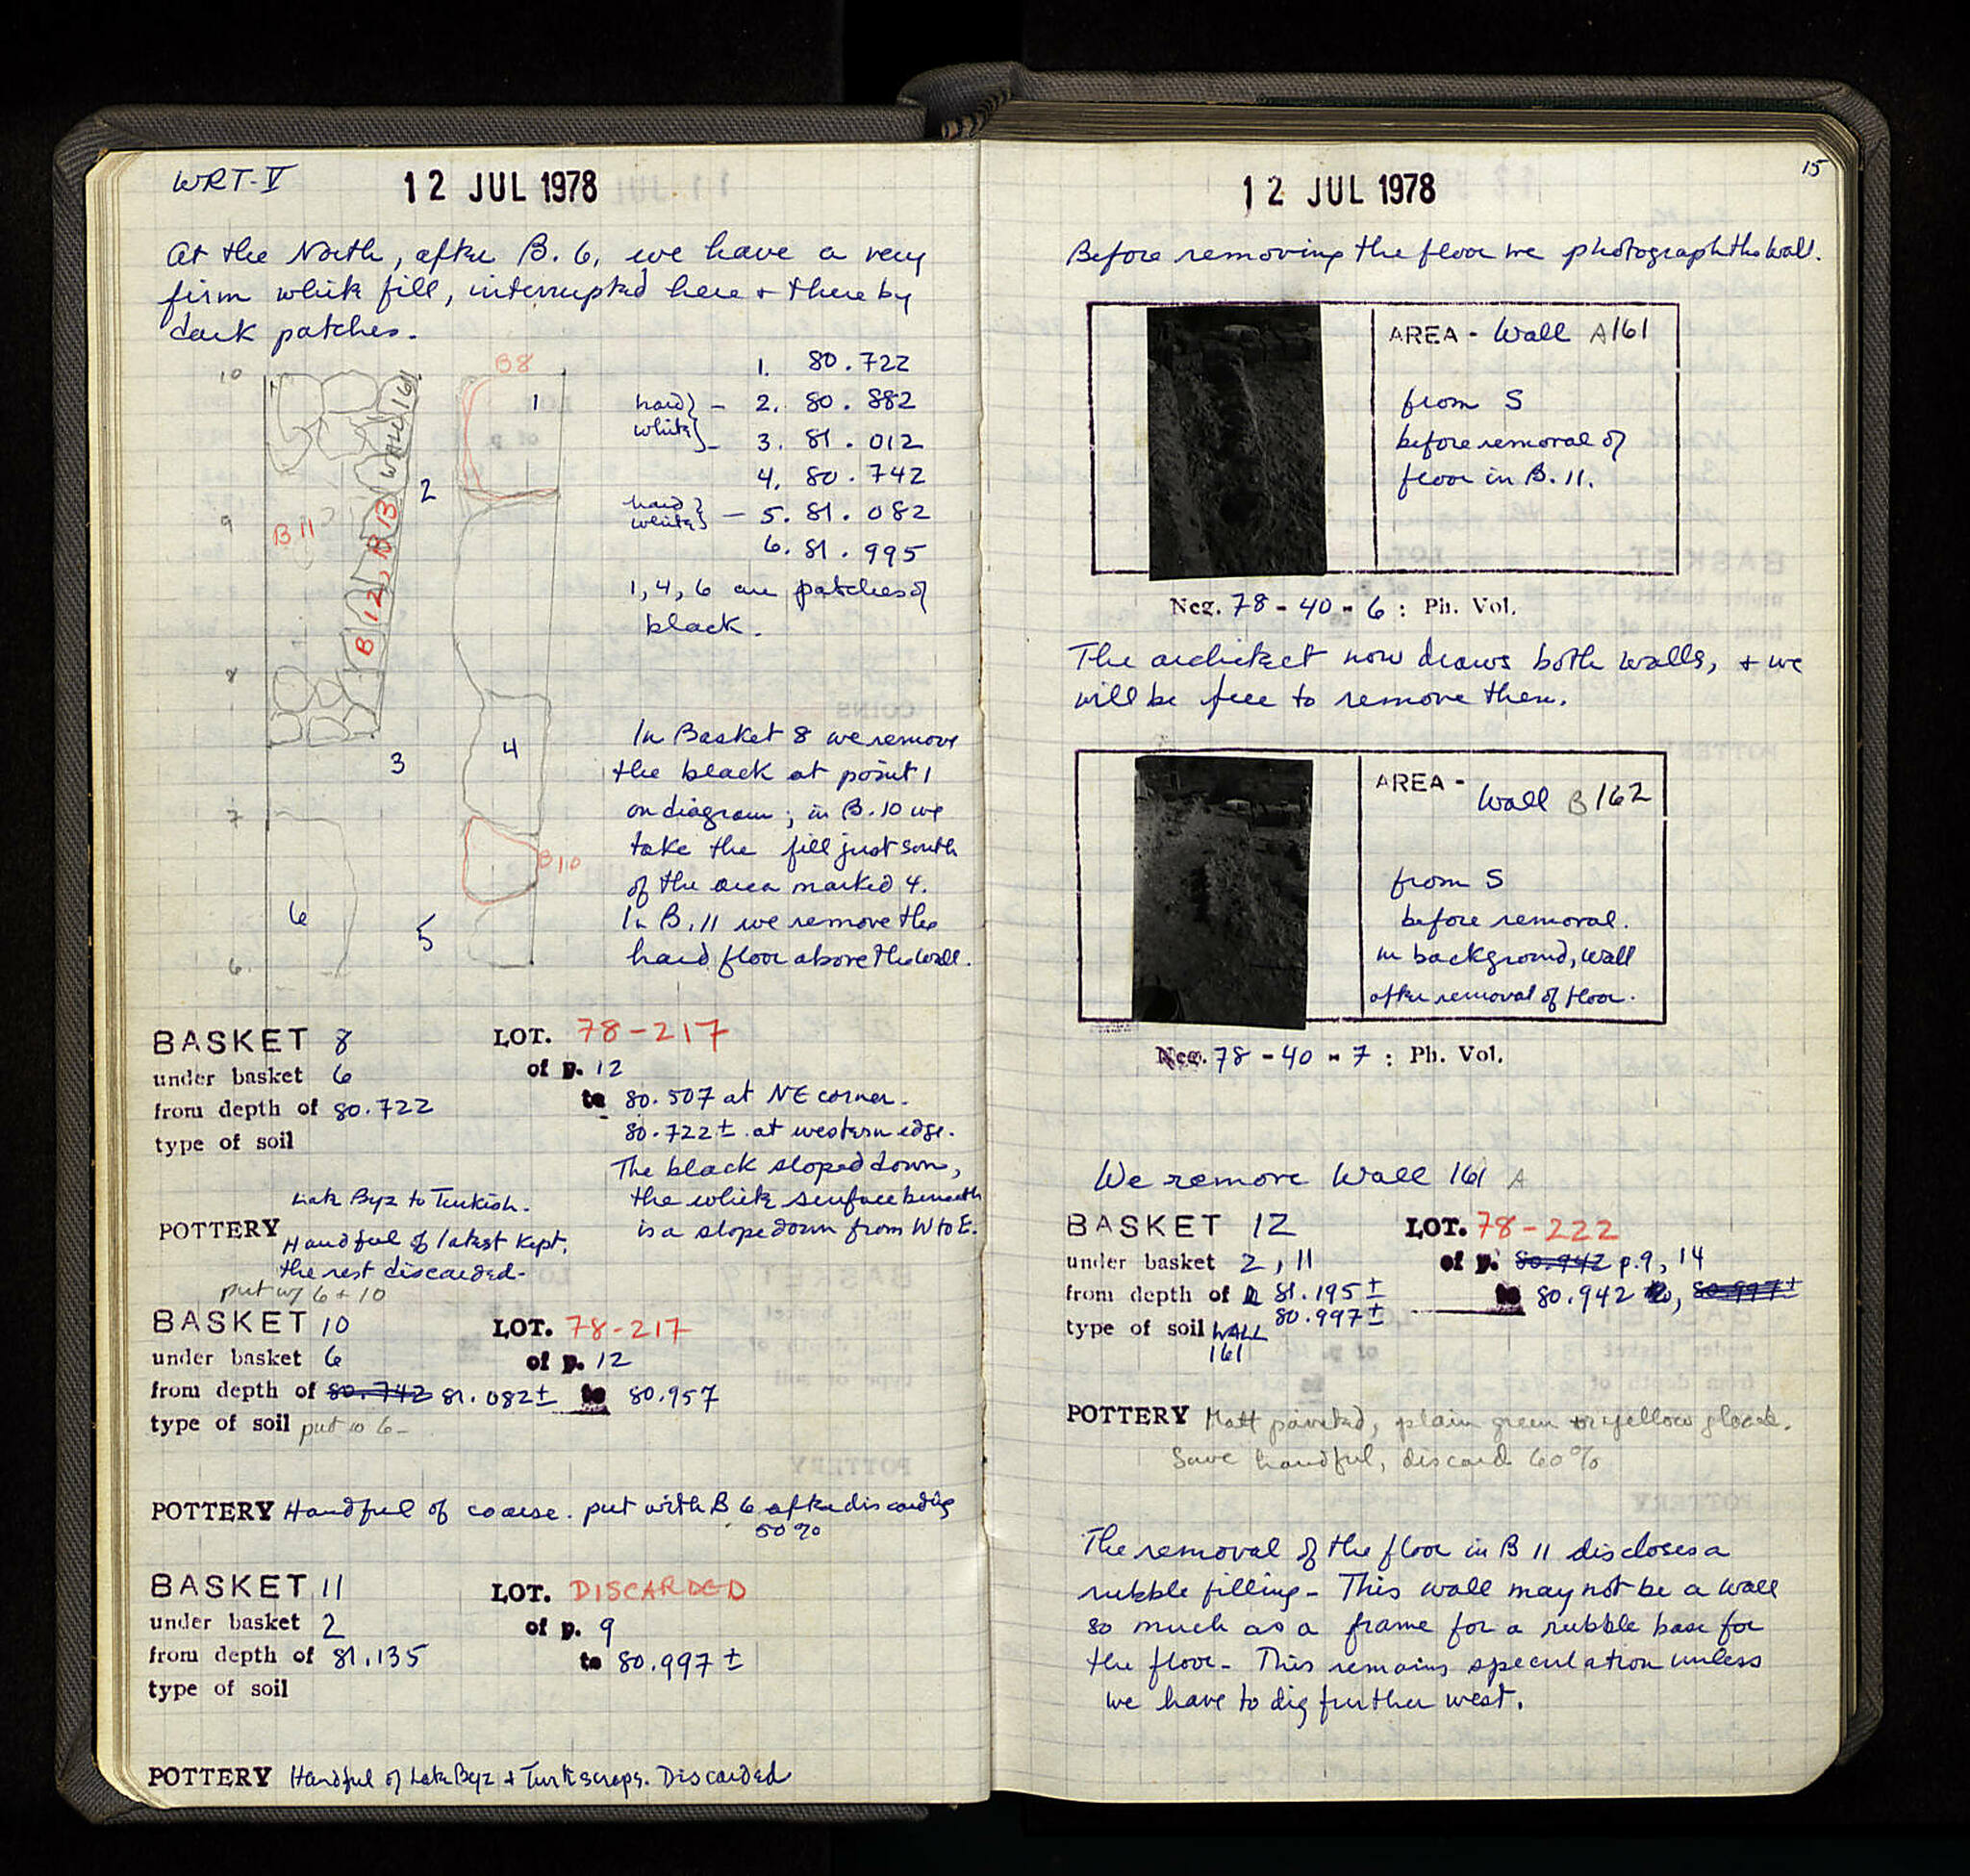 WRT-V
12 JUL 1978
At the North, after B. 6, we have a very
firm white fill, interrupted here + there by
dark patches.
10
9
8
7
6
B8
1
WALL 161
2
B 11
B 12, B 13
3
4
B10
6
5
1. 80.722
hard } - 2. 80.882
white } - 3. 81.012
4. 80.742
hard } - 5. 81.082
white }
6. 81.995
1, 4, 6 are patches of
black.
In Basket 8 we remove
the black at point 1
on diagram; in B.10 we
take the fill just south
of the area marked 4.
In B.11 we remove the
hard floor above the wall.
BASKET 8 LOT. 78-217
under basket 6 of p. 12
from depth of 80.722 to 80.507 at NE corner.
80.722± at western edge.
type of soil
The black sloped down,
the white surface beneath
is a slope down from W to E.
Late Byz to Turkish.
POTTERY Handful of latest kept,
the rest discarded-
put w/ 6 + 10
BASKET 10 LOT. 78-217
under basket 6 of p. 12
from depth of 80.742 81.082± to 80.957
type of soil put w 6-
POTTERY Handful of coarse. put with B 6 after discarding
50%
BASKET 11 LOT. DISCARDED
under basket 2 of p. 9
from depth of 81.135 to 80.997±
type of soil
POTTERY Handful of Late Byz + Turk scraps. Discarded
15
12 JUL 1978
Before removing the floor we photograph the wall.
AREA - Wall A161
from S
before removal of
floor in B.11.
Neg. 78-40-6 : Ph. Vol.
The architect now draws both walls, + we
will be free to remove them.
AREA - Wall B162
from S
before removal.
in background, wall
after removal of floor.
Neg. 78-40-7 : Ph. Vol.
We remove Wall 161 A
BASKET 12 LOT. 78-222
under basket 2, 11 of p. 80.942 p.9, 14
from depth of 81.195± to 80.942, 80.997±
80.997±
type of soil WALL
161
POTTERY Matt painted, plain green or yellow glaze.
Save handful, discard 60%
The removal of the floor in B 11 discloses a
rubble filling - This wall may not be a wall
so much as a frame for a rubble base for
the floor - This remains speculation unless
we have to dig further west.